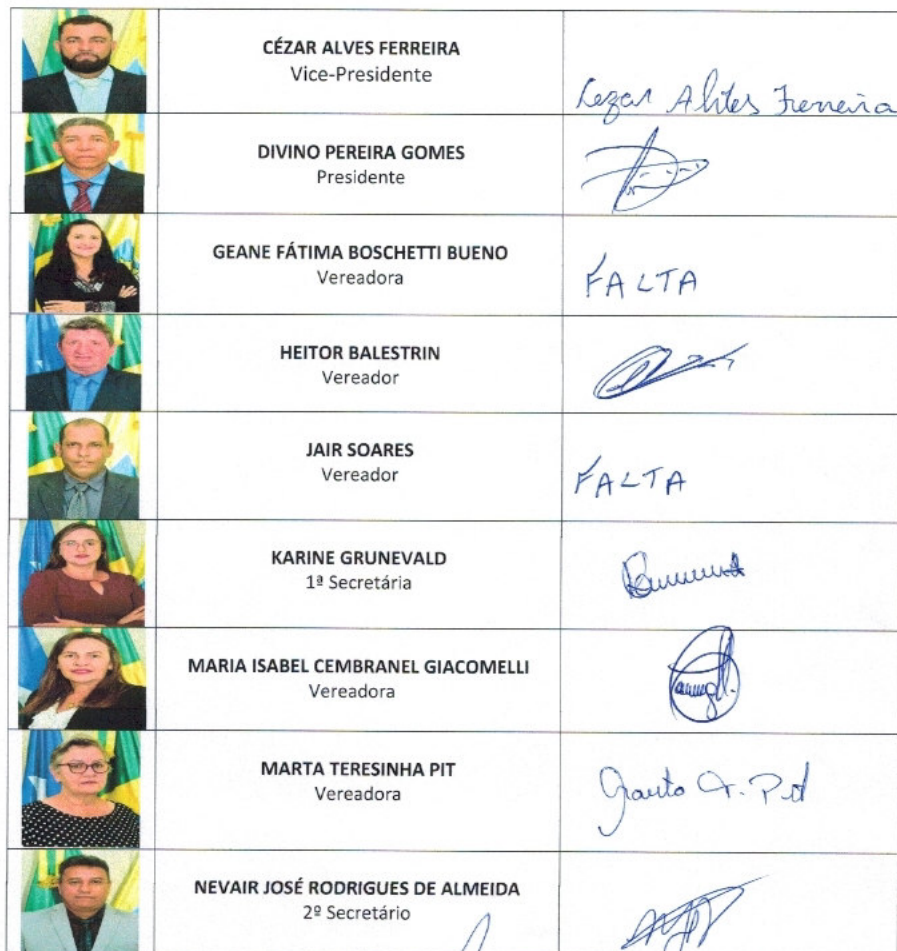 CÉZAR ALVES FERREIRA
Vice-Presidente
Cezar Alves Ferreira
DIVINO PEREIRA GOMES
Presidente
GEANE FÁTIMA BOSCHETTI BUENO
Vereadora
FALTA
HEITOR BALESTRIN
Vereador
JAIR SOARES
Vereador
FALTA
KARINE GRUNEVALD
1ª Secretária
MARIA ISABEL CEMBRANEL GIACOMELLI
Vereadora
MARTA TERESINHA PIT
Vereadora
Marta T. Pit
NEVAIR JOSÉ RODRIGUES DE ALMEIDA
2º Secretário